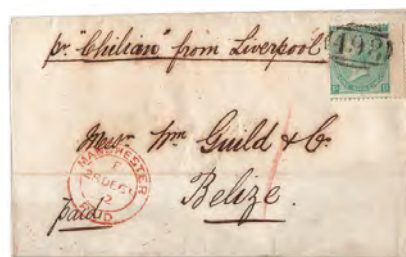 pr. "Chilian" from Liverpool
498
Messrs. Wm Guild & Co.
Belize.
MANCHESTER
F
DEC
2
PAID
paid